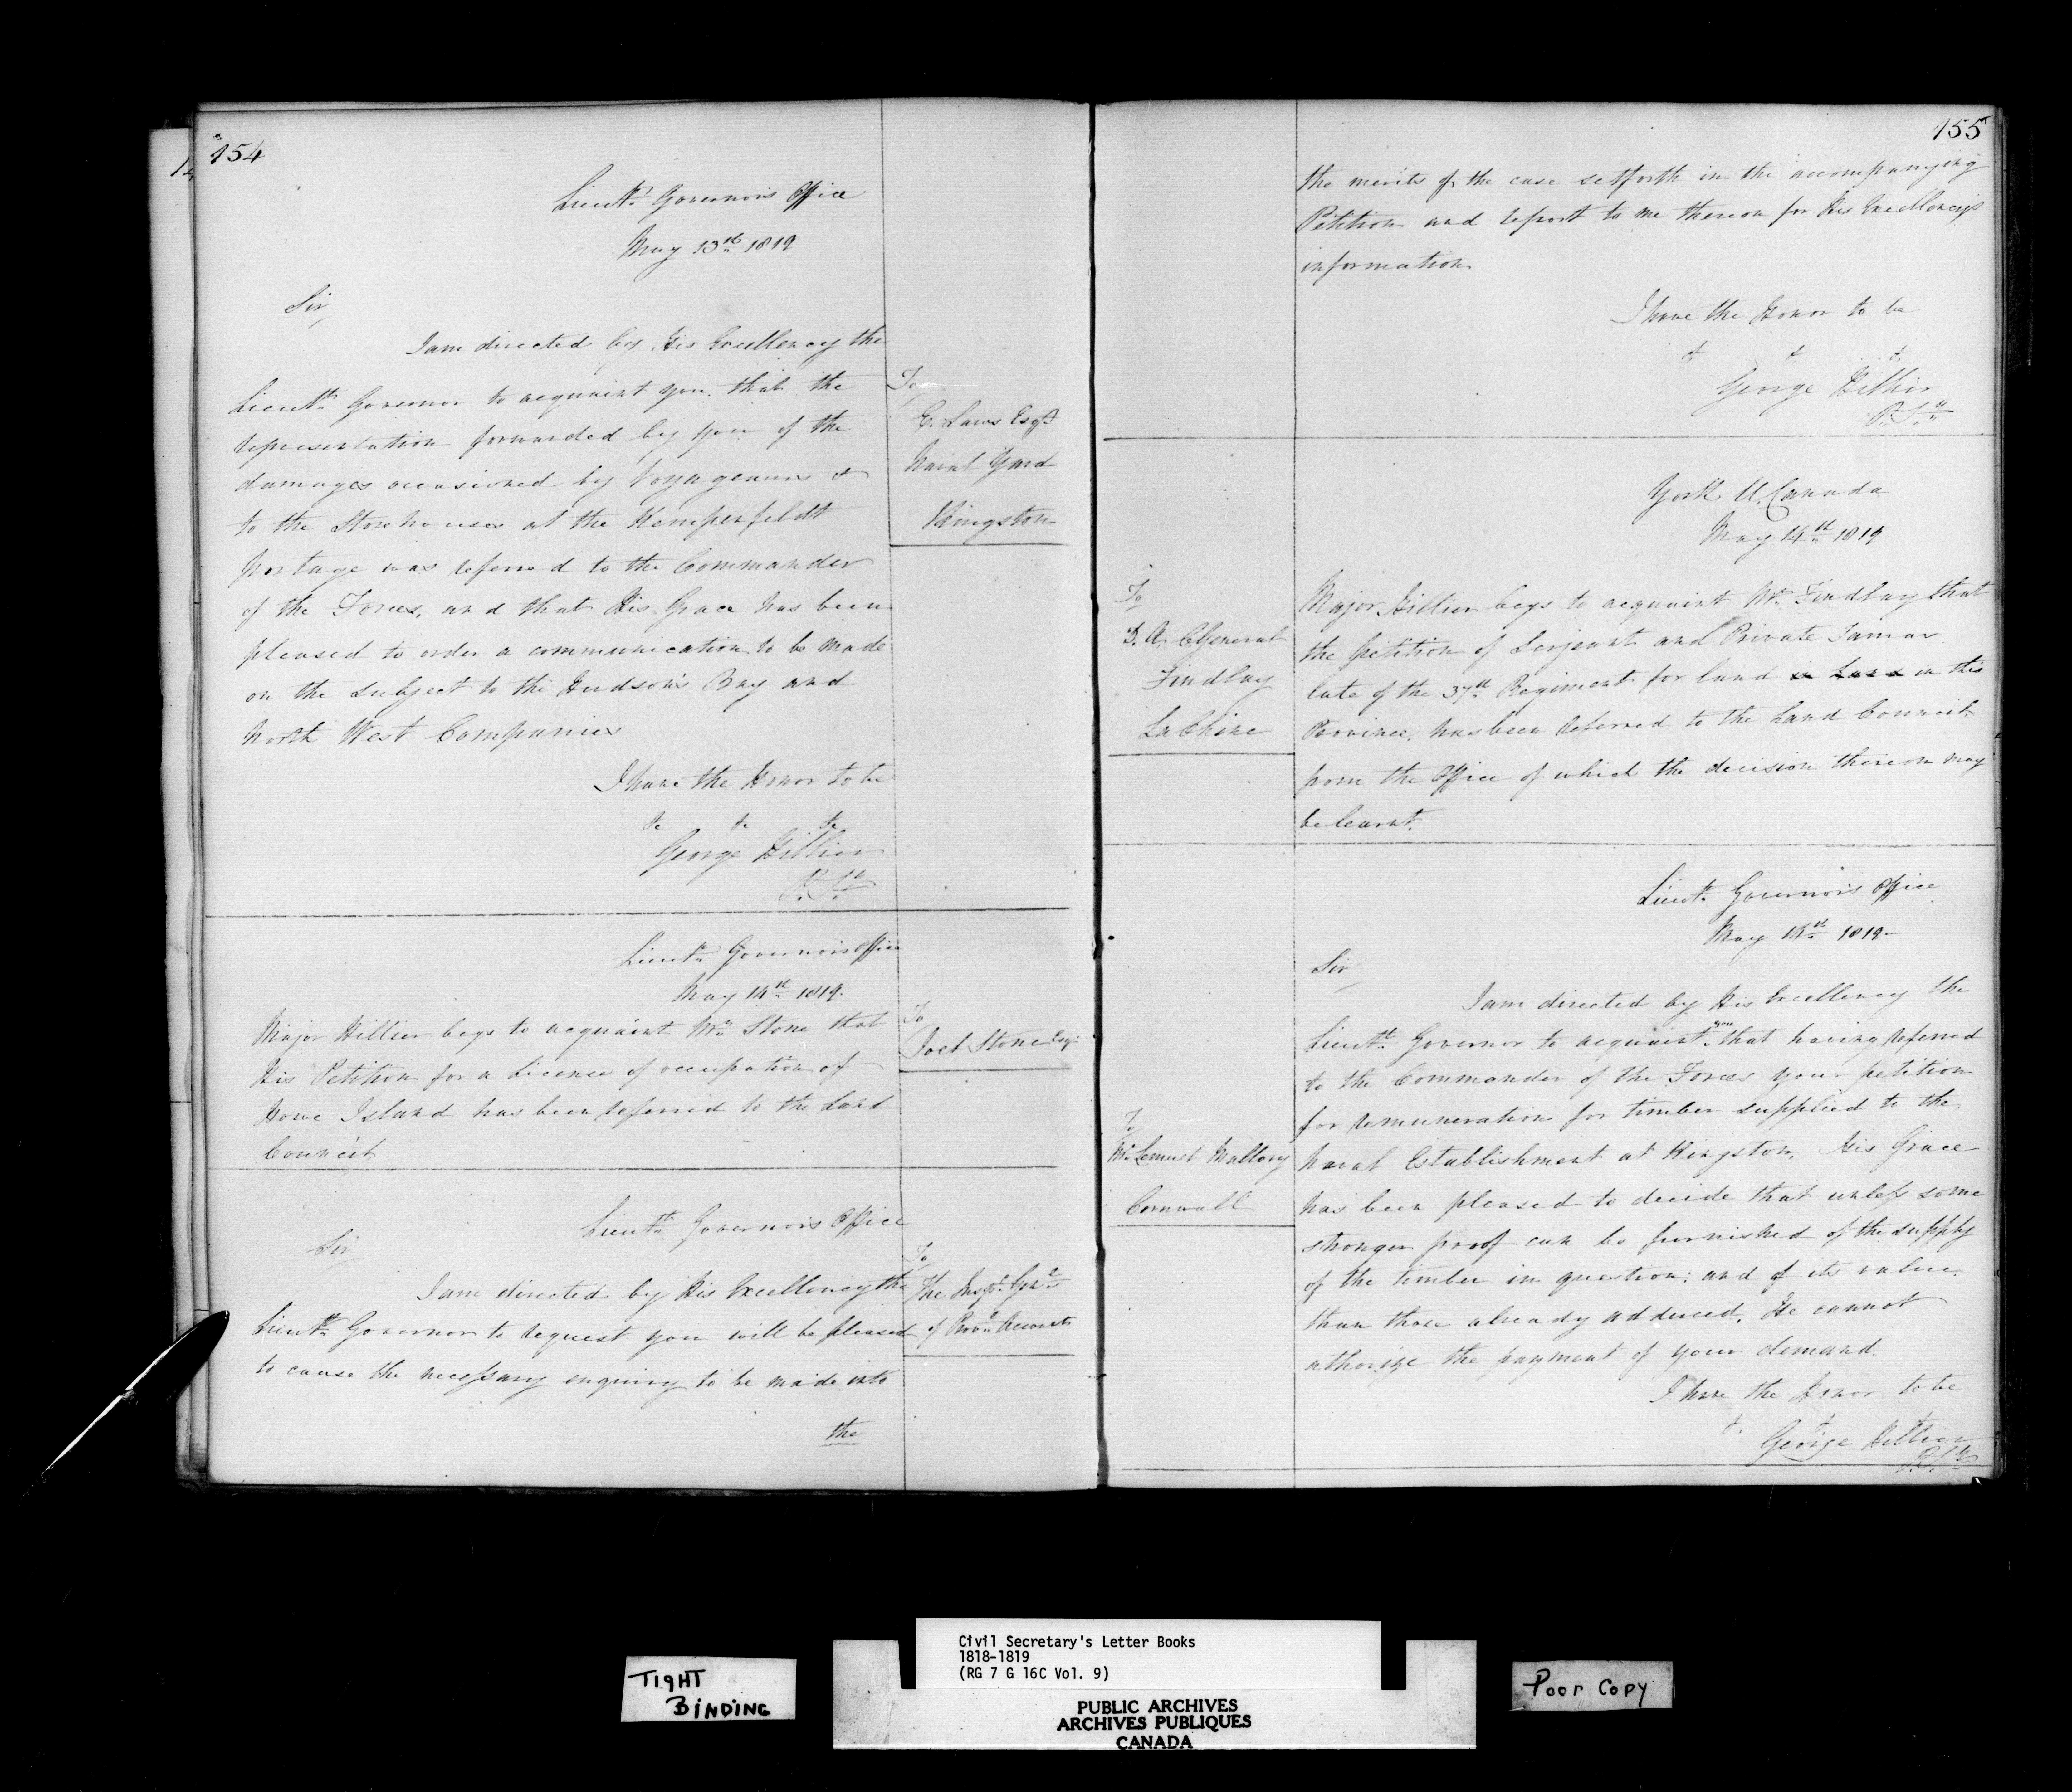 154
Lieut.t Governor's Office
May 13th 1819
Sir,
I am directed by His Excellency the
Lieut.t Governor to acquaint you, that the
representation forwarded by you of the
damages occasioned by Voyageurs &
to the Storehouses at the Kempenfeldt
portage was referred to the Commander
of the Forces, and that His Grace has been
pleased to order a communication to be made
on the subject to the Hudson's Bay and
North West Companies
I have the Honor to be
&c &c &c
George Hillier
P. S.y
To
E. Laws Esq.r
Naval Yard
Kingston
Lieut.t Governors Office
May 14th 1819.
Major Hillier begs to acquaint Mr. Stone that
His Petition for a License of occupation of
Howe Island has been referred to the Land
Council
To
Joel Stone Esq.r
Lieut.t Governors Office
Sir
I am directed by His Excellency the
Lieut.t Governor to request you will be pleased
to cause the necessary enquiry to be made into
the
To
The Insp.r Gen.l
of Prov.l Accounts
155
the merits of the case setforth in the accompanying
Petition and report to me thereon for His Excellency's
information
I have the Honor to be
& & &
George Hillier
P. S.y
York U. Canada
May 14th 1819
To
D. A. C General
Findlay
La Chine
Major Hillier begs to acquaint Mr. Findlay that
the petition of Serjeant and Private
late of the 37th Regiment for land in this
Province, has been referred to the Land Council
from the Office of which the decision thereon may
be learnt.
Lieut.t Governor's Office
May 14th 1819-
Sir
I am directed by His Excellency the
Lieut.t Governor to acquaint you that having referred
to the Commander of the Forces your petition
for remuneration for timber supplied to the
Naval Establishment at Kingston, His Grace
has been pleased to decide that unless some
stronger proof can be furnished of the supply
of the timber in question; and of its value.
than those already adduced, He cannot
athorize the payment of your demand.
I have the Honor to be
& &
George Hillier
P. S.y
To
Mr. Lemuel Mallory
Cornwall
TIGHT
BINDING
Civil Secretary's Letter Books
1818-1819
(RG 7 G 16C Vol. 9)
PUBLIC ARCHIVES
ARCHIVES PUBLIQUES
CANADA
Poor Copy